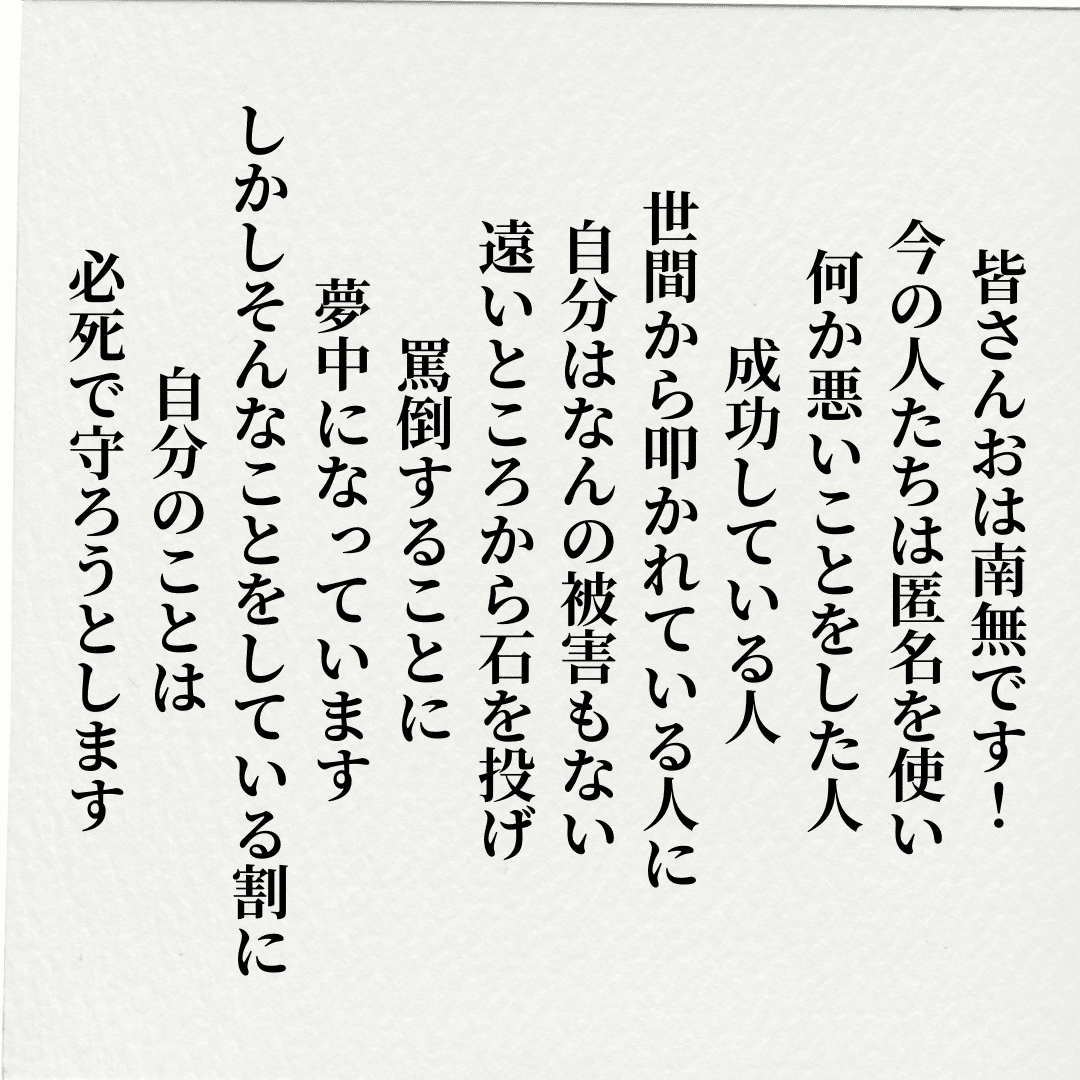 皆さんおは南無です！
今の人たちは匿名を使い
何か悪いことをした人
成功している人
世間から叩かれている人に
自分はなんの被害もない
遠いところから石を投げ
罵倒することに
夢中になっています
しかしそんなことをしている割に
自分のことは
必死で守ろうとします